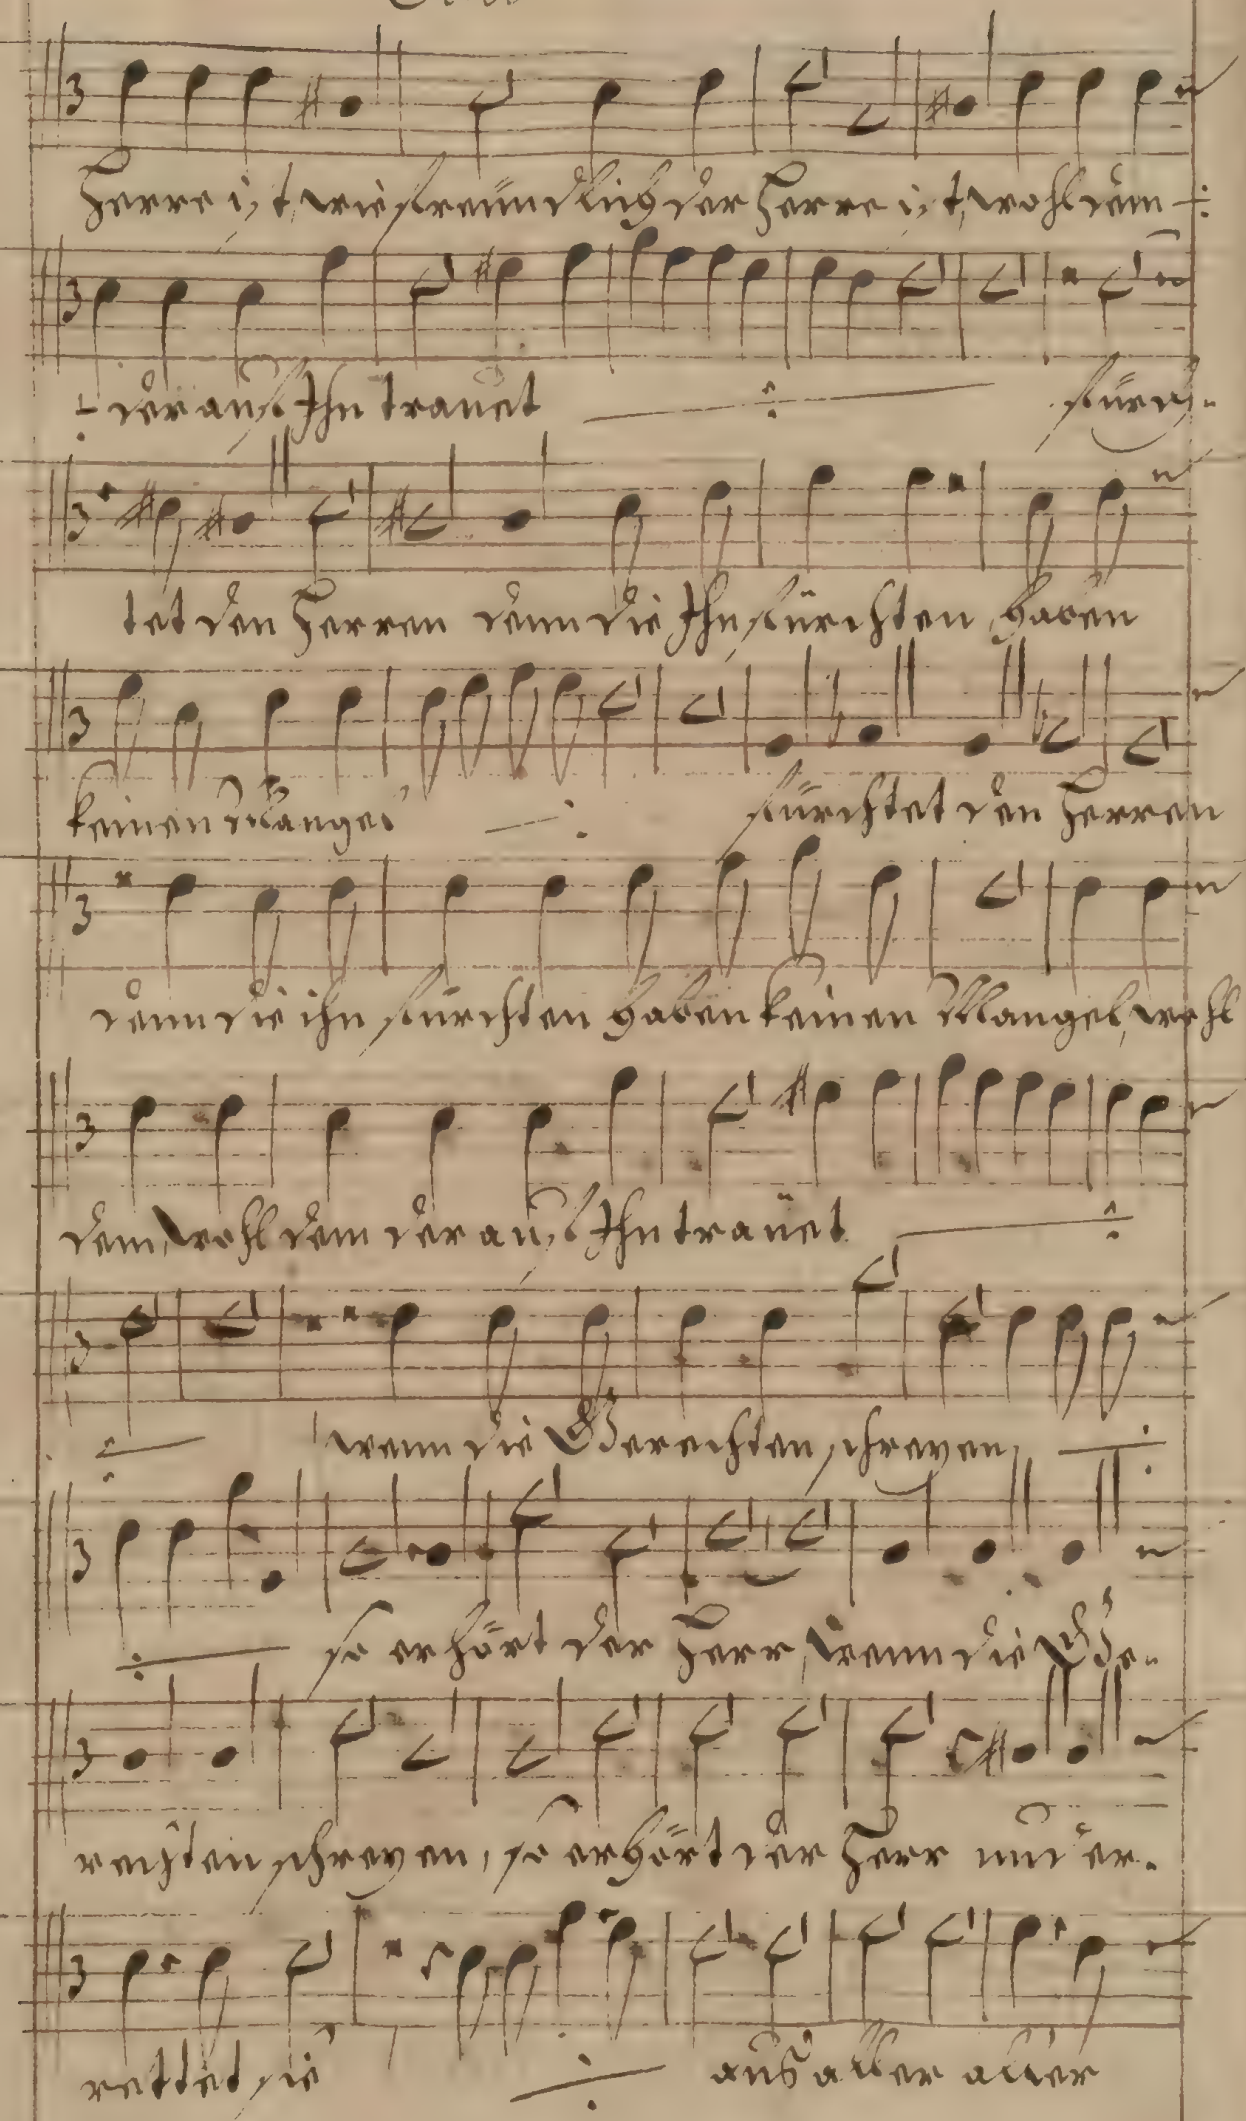 Herre ist, wie freundlich der Herre ist, wohl dem
der auf Ihn trauet fürch-
tet den Herren denn die Ihn fürchten, haben
keinen Mangel fürchtet den Herren
denn die ihn fürchten haben keinen Mangel, wohl
dem, wohl dem der auf Ihn trauet
wenn die Gerechten schreyen,
so erhört der Herr, wenn die Ge-
rechten schreyen, so erhört der Herr und er-
rettet sie aus aller aller